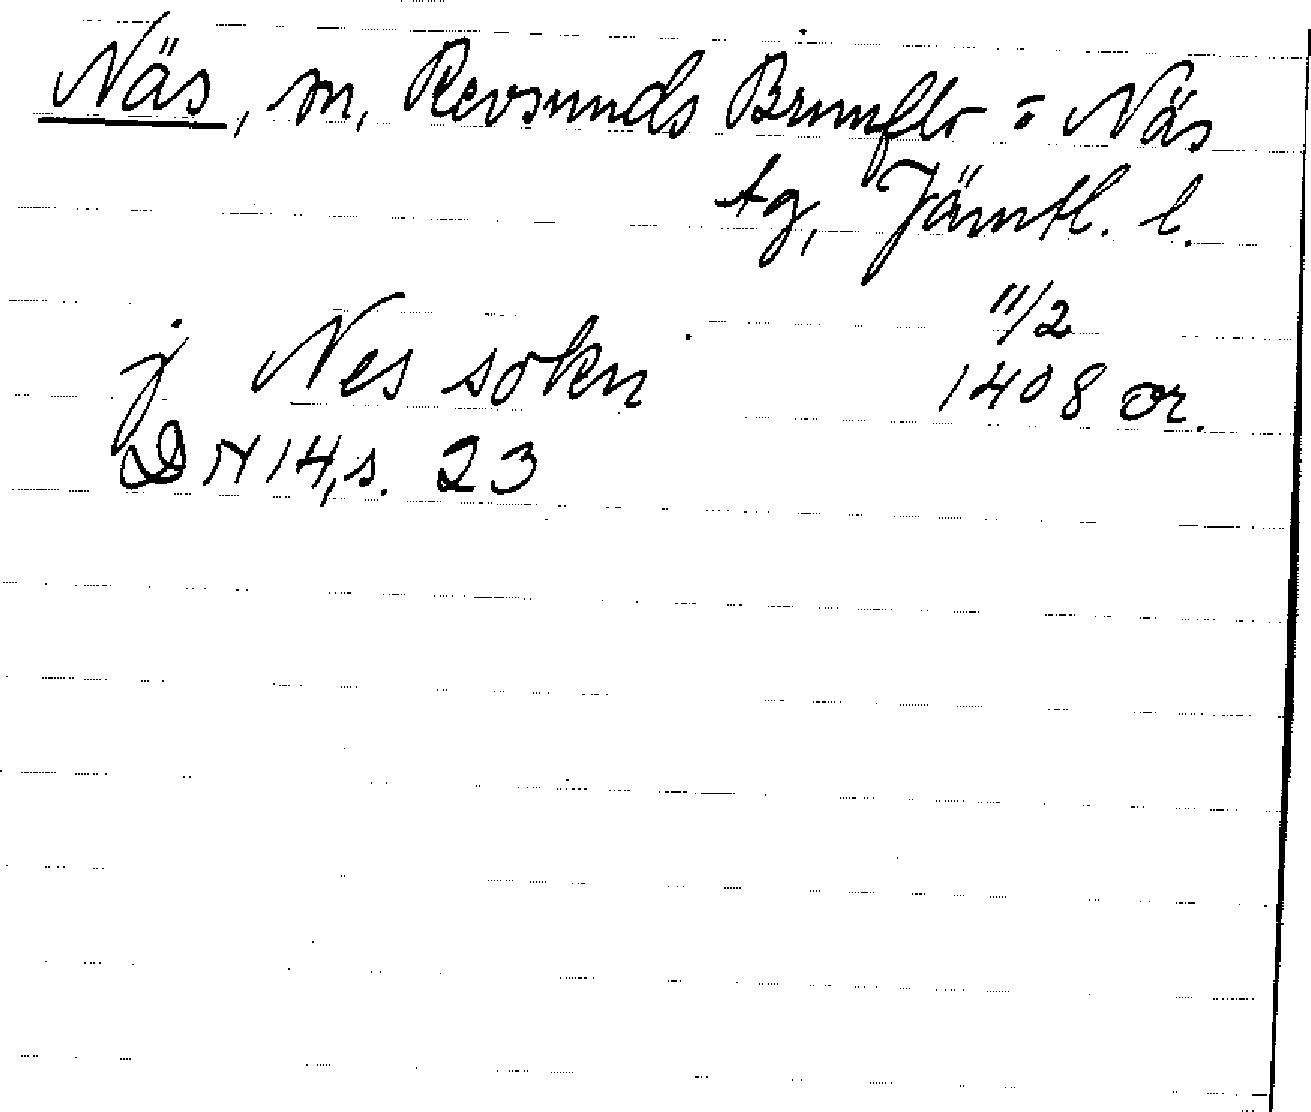 Näs, sn, Revsunds Brunflo = Näs
tg, Jämtl. l.
11/2
j Nes sokn 1408 or.
DN 14, s. 23